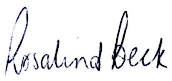 Rosalind Beck